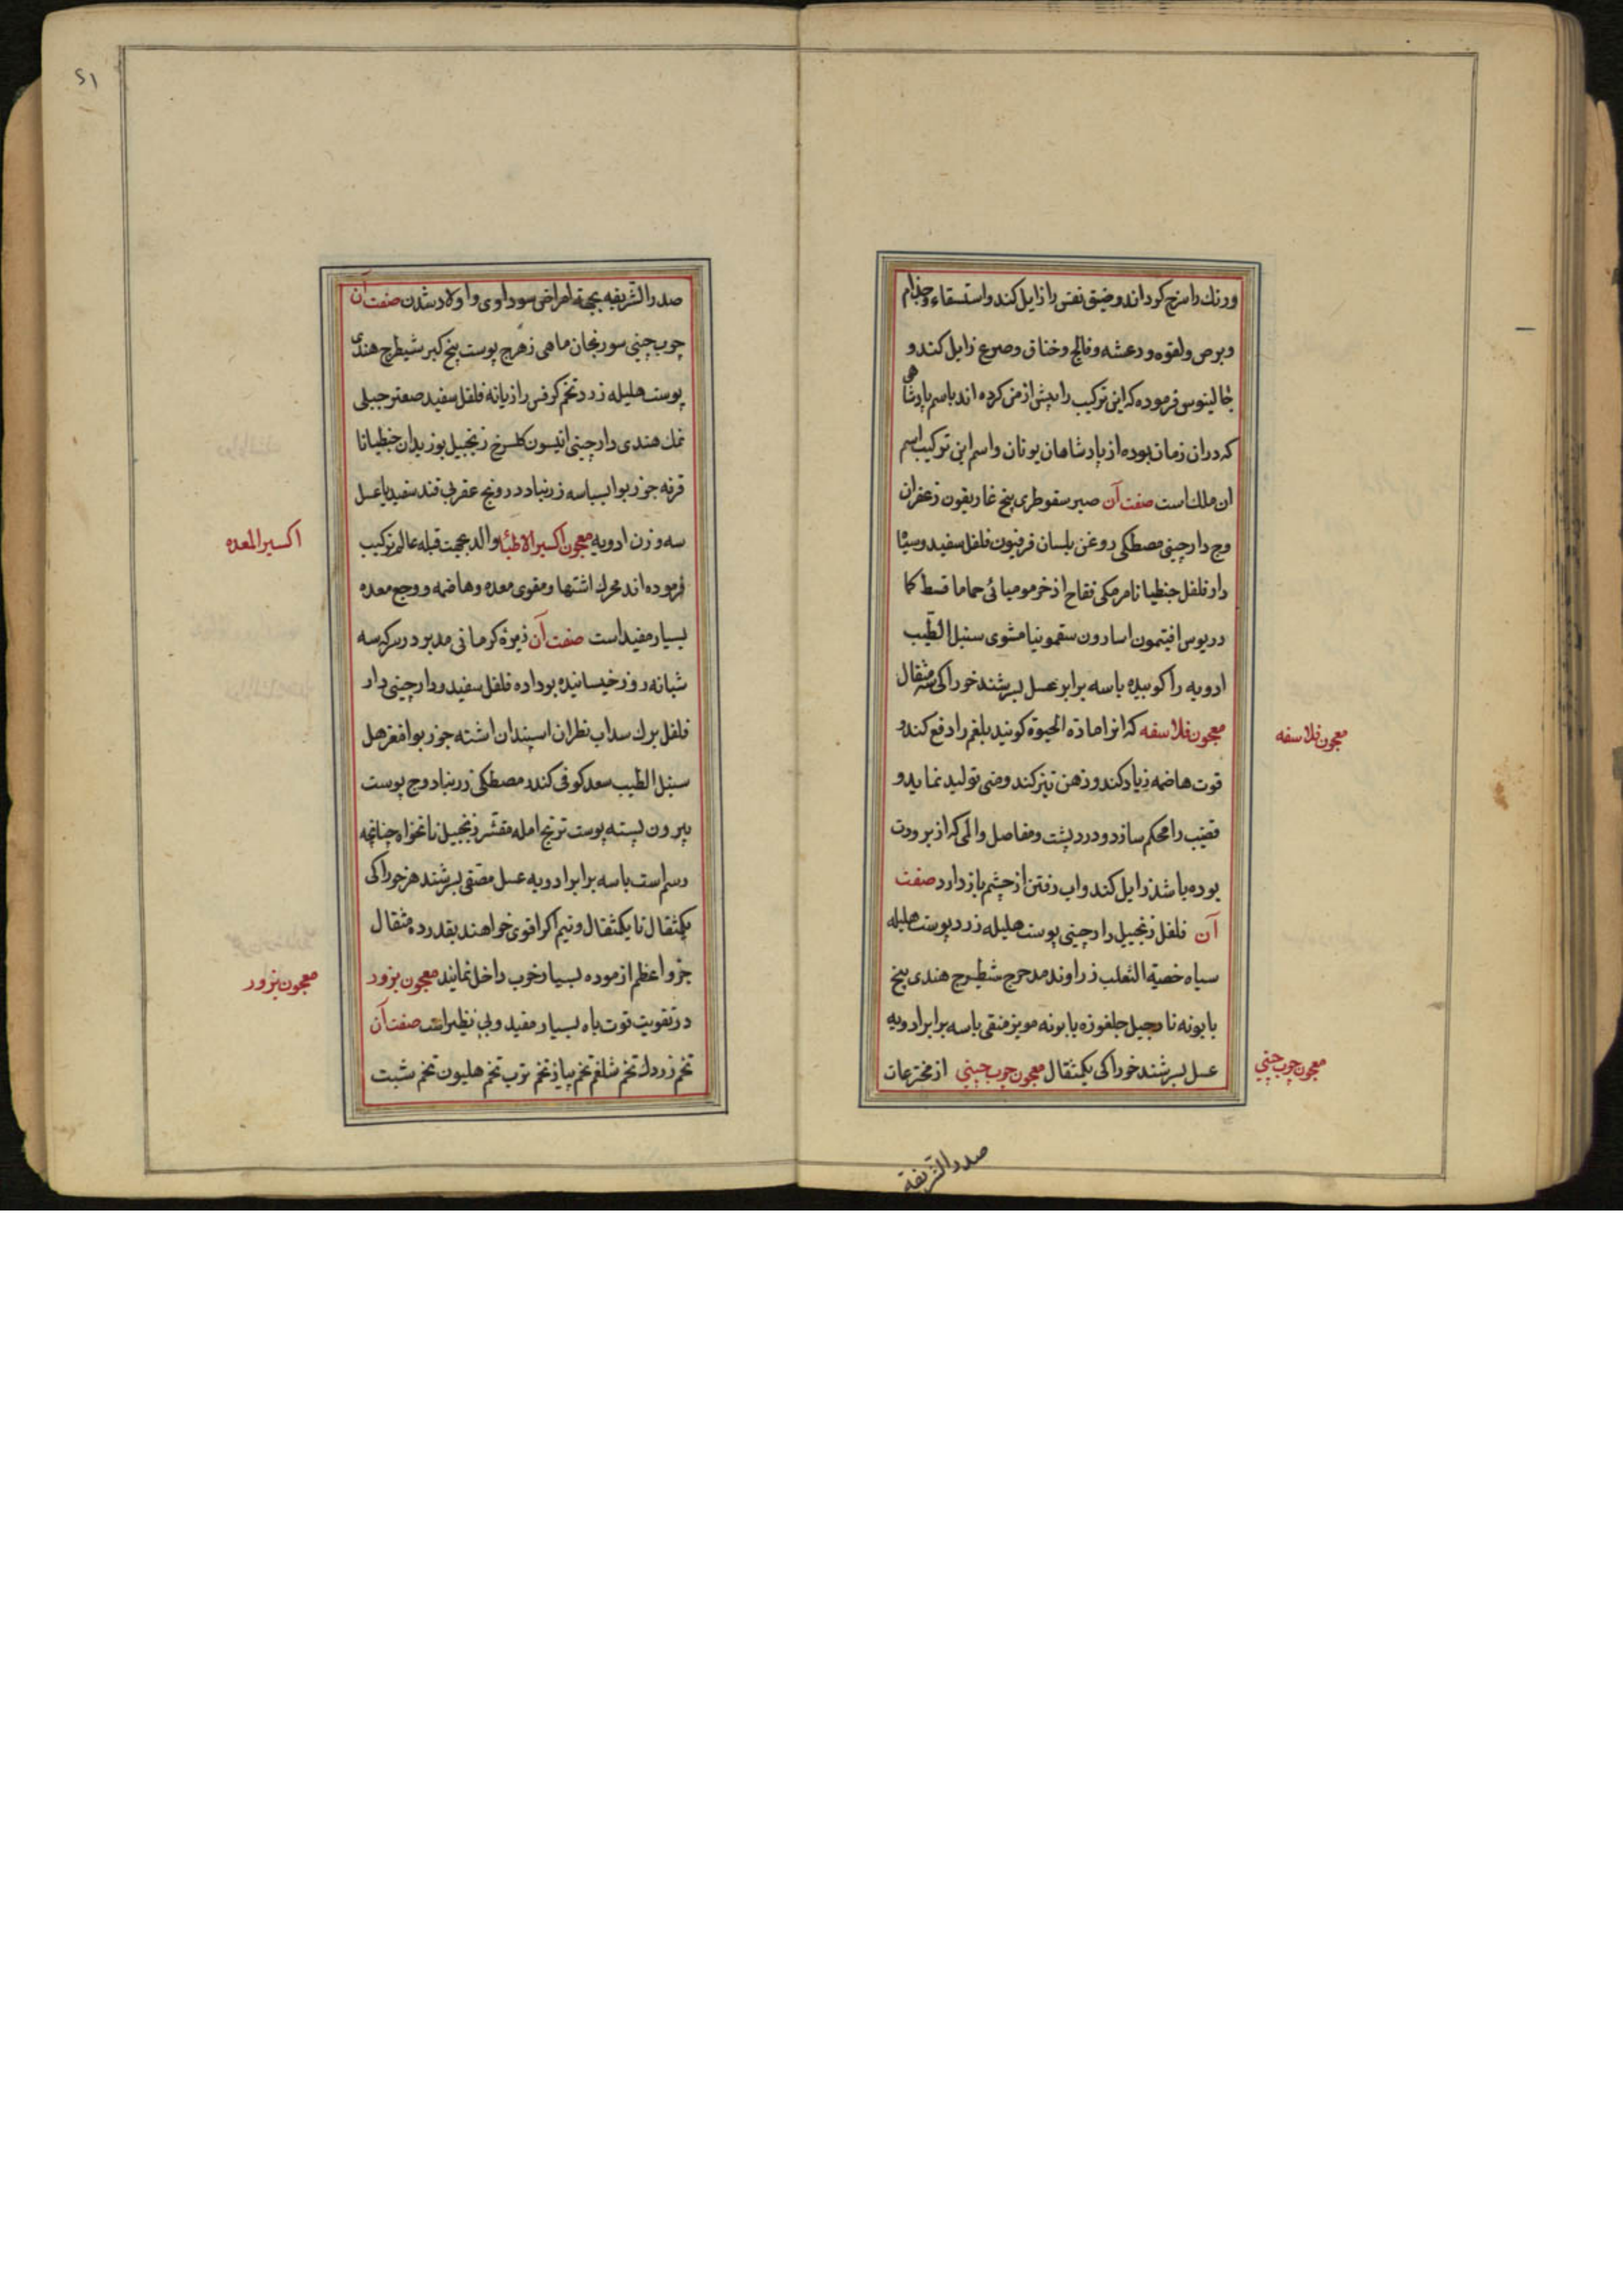 ورنك را سرخ كرداند و ضيق نفس را زايل كند و استسقاء و جذام
و برص و لقوه و رعشه و فالج و خناق و صرع زايل كند و
جالينوس فرموده كه اين تركيب را پيش از من كرده اند باسم پادشاهى
كه دران زمان بوده از پادشاهان يونان و اسم اين تركيب اسم
ان ملك است صفت آن صبر سقوطرى پنج غاريقون زعفران
وج دارچينى مصطكى روغن بلسان فرفيون فلفل سفيد و سياه
دار فلفل جنطيانا مرمكى فقاح اذخر موميائى حماما قسط كما
دريوس افتيمون اسارون سقمونيا مشوى سنبل الطيب
ادويه را كوبيده با سه برابر عسل بسرشند خوراكى سه مثقال
معجون فلاسفه كه انرا مادة الحيوة كويند بلغم را دفع كند و
قوت هاضمه زياد كند و ذهن تيز كند و منى توليد نمايد و
قضيب را محكم سازد و درد پشت و مفاصل و المى كه از برودت
بوده باشد زايل كند و اب رفتن از چشم باز دارد صفت
آن فلفل زنجبيل دارچينى پوست هليله زرد پوست هليله
سياه خصية الثعلب زراوند مدحرج شطيرج هندى بيخ
بابونه نارجيل جلغوزه بابونه مويز منقى با سه برابر ادويه
عسل بسرشند خوراكى يكمثقال معجون چوب چينى از مخترعات
معجون فلاسفه
معجون چوب چينى
صدر الشريفه
۲۱
صدر الشريفه بجهة امراض سوداوى و اولاد شدن صفت آن
چوب چينى سورنجان ماهى زهرج پوست بيخ كبر شيطرج هندى
پوست هليله زرد تخم كرفس رازيانه فلفل سفيد صعتر جبلى
نمك هندى دارچينى انيسون كلسرخ زنجبيل بوزيدان جنطيانا
قرفه جوز بوا بسباسه زرنباد درونج عقربى قند سفيد يا عسل
سه وزن ادويه معجون اكسير الاطبا والد عجمت قبله عالم تركيب
فرموده اند محرك اشتها و مقوى معده و هاضمه و وجع معده
بسيار مفيد است صفت آن زيرۀ كرمانى مدبر در سركه سه
شبانه روز خيسانيده بوداده فلفل سفيد و دارچينى دار
فلفل برك سداب نظران اسپندان اشته جوز بوا مغز هل
سنبل الطيب سعد كوفى كندر مصطكى زرنباد وج پوست
بيرون پسته پوست ترنج امله مقشر زنجبيل نانخواه چنانچه
رسم است با سه برابر ادويه عسل مصفى بسرشند هر خوراكى
يكمثقال تا يكمثقال و نيم اكر اقوى خواهند بقدر ده مثقال
جزو اعظم ازموده بسيار خوب داخل نمايند معجون بزور
در تقويت قوت باه بسيار مفيد و بى نظير است صفت آن
تخم زردك تخم شلغم تخم پياز تخم ترب تخم هليون تخم شبت
اكسير المعده
معجون بزور